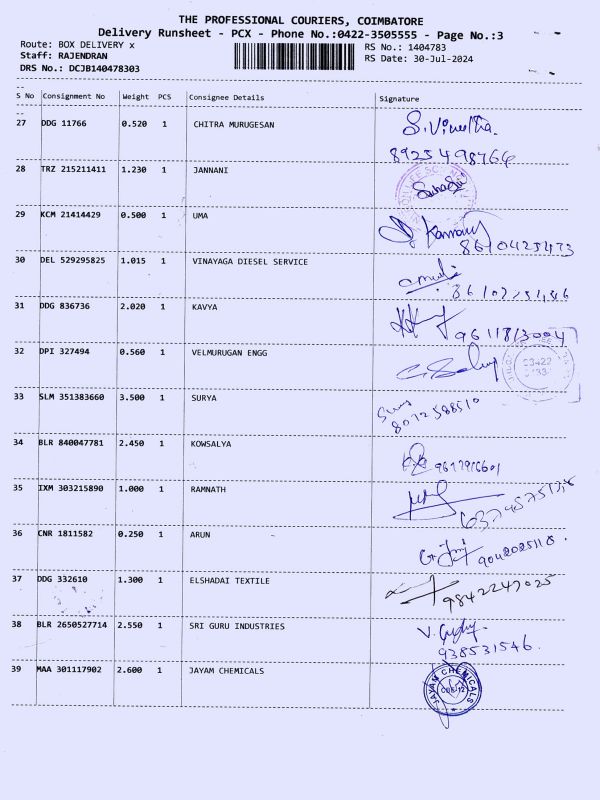 THE PROFESSIONAL COURIERS, COIMBATORE
Delivery Runsheet - PCX - Phone No.:0422-3505555 - Page No.:3
Route: BOX DELIVERY x RS No.: 1404783
Staff: RAJENDRAN RS Date: 30-Jul-2024
DRS No.: DCJB140478303
S No Consignment No Weight PCS Consignee Details Signature
27 DDG 11766 0.520 1 CHITRA MURUGESAN S.Vineetha.
8925498766
28 TRZ 215211411 1.230 1 JANNANI
29 KCM 21414429 0.500 1 UMA
30 DEL 529295825 1.015 1 VINAYAGA DIESEL SERVICE
31 DDG 836736 2.020 1 KAVYA
32 DPI 327494 0.560 1 VELMURUGAN ENGG
33 SLM 351383660 3.500 1 SURYA
8072588510
34 BLR 840047781 2.450 1 KOWSALYA
35 IXM 303215890 1.000 1 RAMNATH
36 CNR 1811582 0.250 1 ARUN
9042025118.
37 DDG 332610 1.300 1 ELSHADAI TEXTILE
9842247025
38 BLR 2650527714 2.550 1 SRI GURU INDUSTRIES
938531546.
39 MAA 301117902 2.600 1 JAYAM CHEMICALS JAYAM CHEMICALS